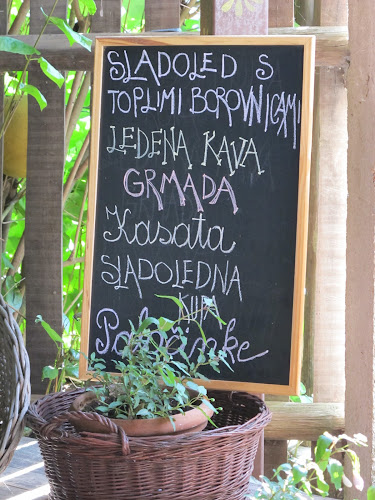 SLADOLED S
TOPLIMI BOROVNICAMI
LEDENA KAVA
GRMADA
Kasata
SLADOLEDNA
KUPA
Palačinke